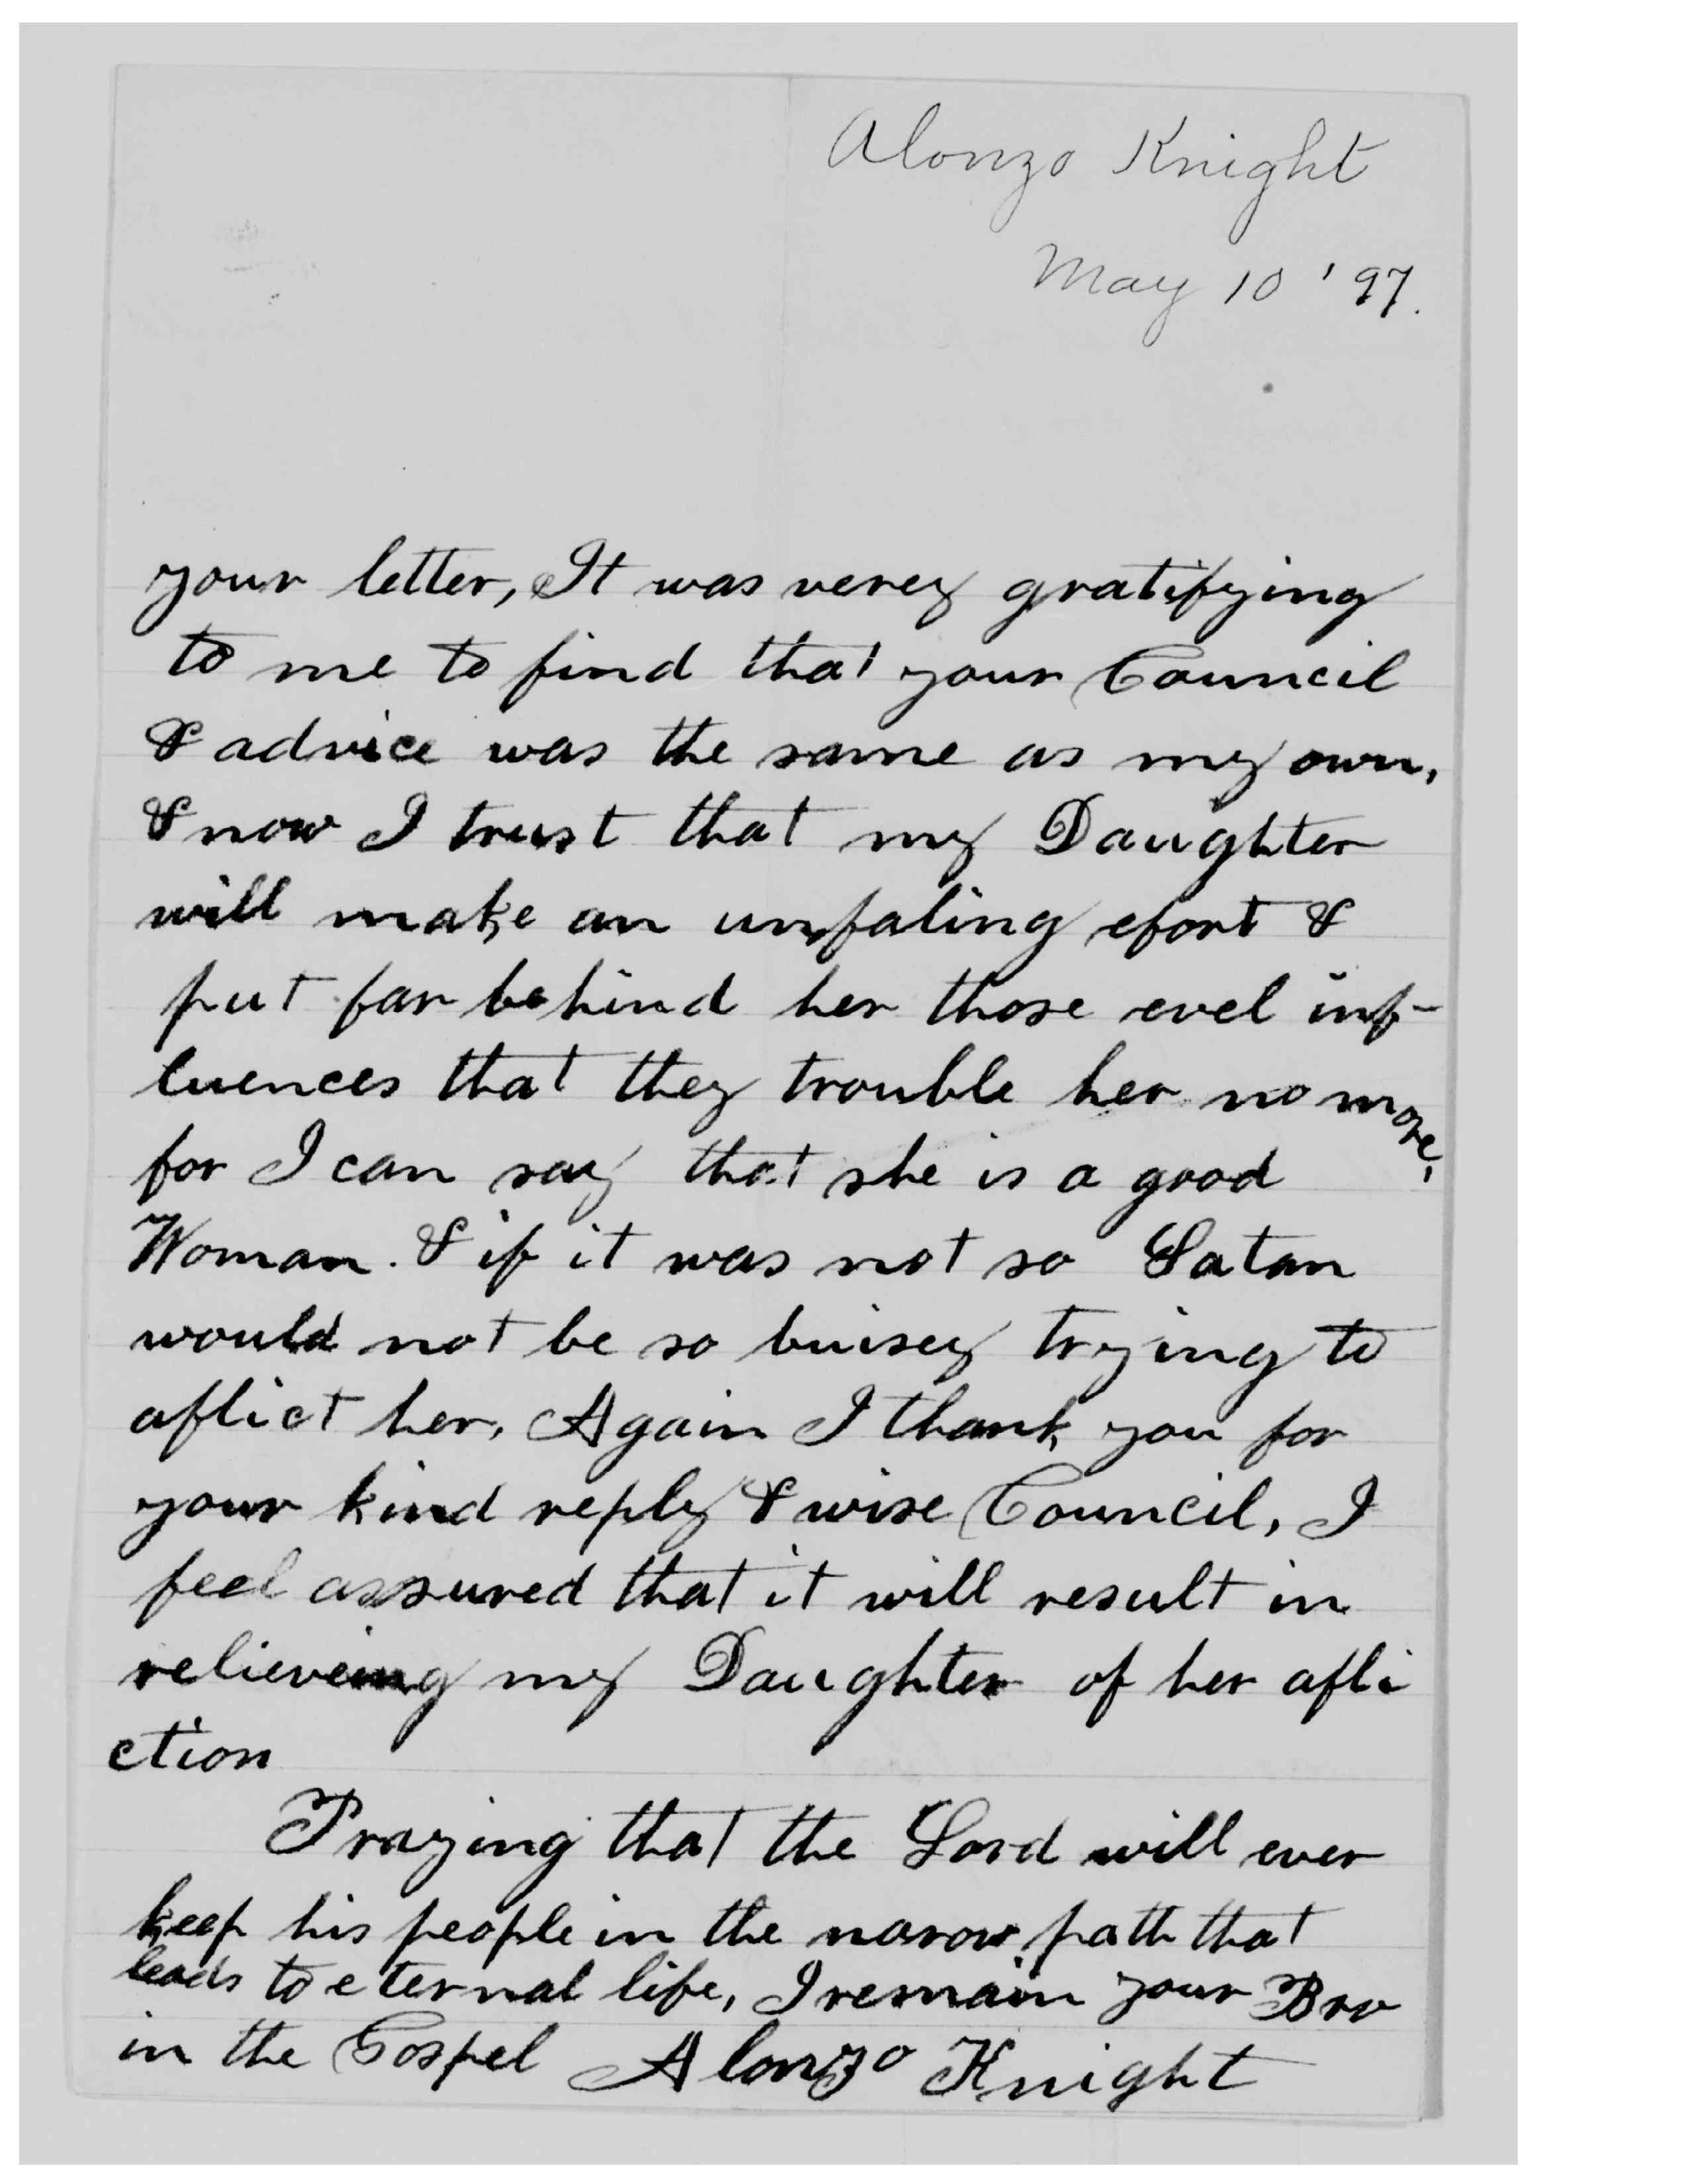 Alonzo Knight
May 10 '97.
your letter, It was verey gratifying
to me to find that your Council
& advice was the same as my own,
& now I trust that my Daughter
will make an unfaling efort &
put far behind her those evel inf-
luences that they trouble her no more,
for I can say that she is a good
Woman. & if it was not so Satan
would not be so buisey trying to
aflict her, Again I thank you for
your kind reply & wise Council, I
feel assured that it will result in
relieveing my Daughter of her afli
ction
Praying that the Lord will ever
keep his people in the narow path that
leads to eternal life, I remain your Bro
in the Gospel Alonzo Knight